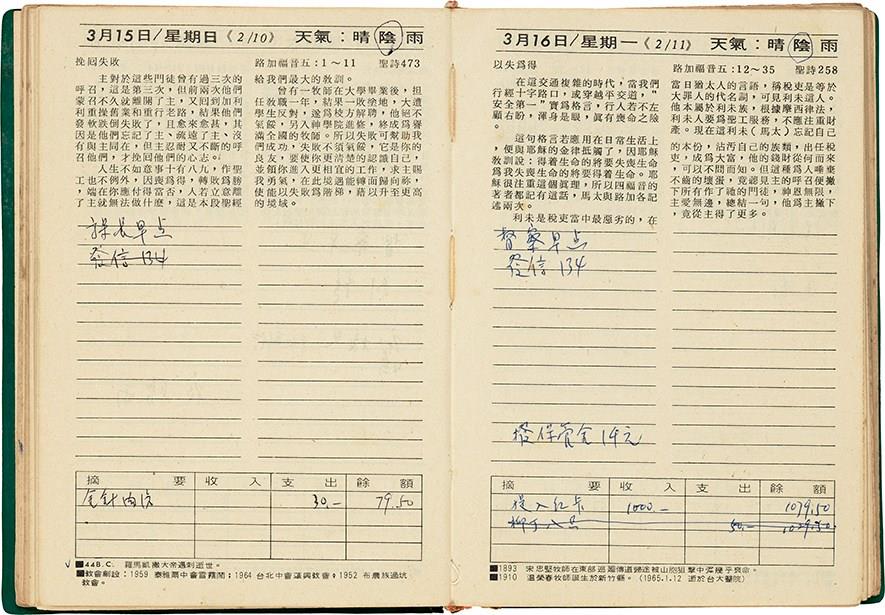 3月15日/星期日《2/10》 天氣：晴 陰 雨
挽囘失敗 路加福音五：1～11 聖詩473
主對於這些門徒曾有過三次的
呼召，這是第三次，但前兩次他們
蒙召不久就離開了主，又回到加利
利重操舊業和重行老路，結果他們
發軟跌倒失敗了，且愈來愈甚，其
因是他們忘記了主、疏遠了主、沒
有與主同在，但主忍耐又不斷的呼
召他們，才挽囘他們的心志。
人生不如意事十有八九，作聖
工也不例外，因喪為得，轉敗為勝
，端在你應付得當否，人若立意離
了主就無法做什麼，這是本段聖經
給我們最大的教訓。
曾有一牧師在大學畢業後，担
任教職一年，結果一敗塗地，大遭
學生反對，遂為校方解聘，他絕不
氣餒，另入神學院進修，終成為譽
滿全國的牧師。所以失敗可教助我
們成功，失敗不須氣餒，它是你的
良友，要使你更清楚的認識自己，
並領你進入更相宜的工作，求主賜
我勇氣，在此境遇面前，歸向祂，
使能以失敗為階梯轉藉以升至更高
的境域。
課長早点
發信134
摘要 收入 支出 餘額
金針肉片 30.- 79.50
■44B.C. 羅馬凱撒大帝遇刺逝世。
■教會創設：1959 泰雅爾中會雪霧鬧；1964 台北中會蓬興教會；1952 布農族過坑
教會。
3月16日/星期一《2/11》 天氣：晴 陰 雨
以失爲得 路加福音五：12～35 聖詩258
在這交通複雜的時代，當我們
行經十字路口，或穿越平交道，"
安全第一"實爲格言，行人若不左
顧右盼，渾身是眼，眞有喪命之險
。
這句格言若應用在日常生活上
，便與耶穌的金律抵觸了，因耶穌
教訓說：得着生命的要喪失生命。
爲我失喪生命的將要得着生命。耶
穌很注重這個眞理，所以四福音的
著者都記有這話，馬太與路加各記
述兩次。
利未是稅吏當中最惡劣的，在
當日猶太人的言語，稱稅吏是等於
大罪人的代名詞，可見利未這人。
他本屬於利未族，根據摩西律法，
利未人要爲聖工獻身，不應注重財
產。現在這利未（馬太）忘記自己
的本份，成爲富他的族類出任稅
吏，大占污，從錢財神，從何而來
，可以不問而知，竟那種人唾棄便撤
不齒的壞蛋，祂認他是呼召無限，
下所有作了祂的門徒，主恩撇下
主愛無邊，總結一句，他爲主撇下
，竟從主得了更多。
督察早点
發信134
發保管金14元
摘要 收入 支出 餘額
從入紅卡 1000.- 1079.50
柳丁八只 50.- 1029.50
■1893 宋忠堅牧師在東部巡廻傳道歸途被山胞狙擊中彈幾乎喪命。
■1910 溫榮春牧師誕生於新竹縣。（1965.1.12 逝於台大醫院）